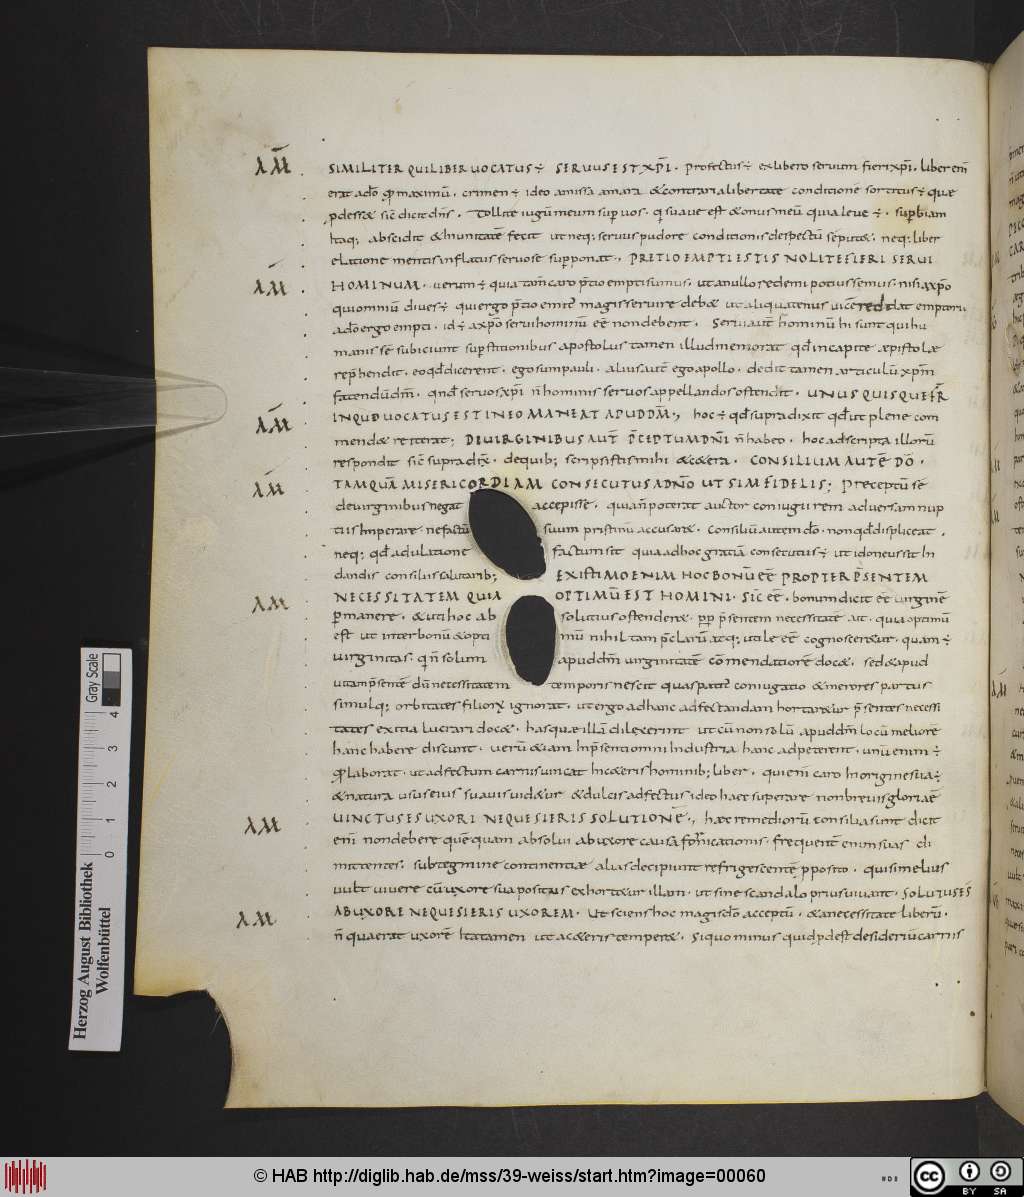 AM SIMILITER QUI LIBER UOCATUS ÷ SERUUS EST XPI. profectus ÷ ex libero seruum fieri xpi. liber enī
erat ad̄o qđ maximū. crimen ÷ ideo amissa amara & contraria libertate conditione sortitus ÷ quę
prodess& sic̄ dicit dn̄s. Tollite iugū meum sup uos. qi suaue est & onus meū quia leue ÷. superbiam
Itaq; abscidit & hunitatē fecit ut neq; seruus pudore conditionis despectū se put&. neq; liber
elatione mentis inflatus seruo se supponat., PRETIO EMPTI ESTIS NOLITE FIERI SERUI
AM HOMINUM. uerum ÷ quia tam̄ caro p̄tio empti sumus. ut a nullo redemi potuissemus. nisi a xpo
qui omniū diues ÷ qui ergo p̄tio emit̄ magis seruire deb& ut aliquatenus uicē reddat emptori
a dō ergo empti. id ÷ a xpo serui hominū eē non debent. Serui aut̄ hominū hi sunt qui hu
manis sē subiciunt superstitionibus apostolus tamen illud memorat qđ in capite æpistolæ
rep̄hendit. eo qđ dicerent. ego sum pauli. alius aut̄ ego apollo. dedit tamen articulū xpm̄
fatendū dm̄. qn̄do seruos xpi n̄ hominis seruos appellandos ostendit. UNUSQUISQUE FR̄
AM IN QUO UOCATUS EST IN EO MANEAT APUD DM̄., hoc ÷ qđ supra dixit qđ ut plene com
mend& reiterat; DE UIRGINIBUS AUT̄ P̄CEPTUM DNI n̄ habeo. hoc ad scripta illorū
respondit sic̄ supra dix̄. de quib; scripsistis mihi & c&era. CONSILIUM AUTĒ DO.
AM TAMQUĀ MISERICORDIAM CONSECUTUS A DNO UT SIM FIDELIS; Preceptū sē
de uirginibus negat accepisse. quia n̄ poterat auctor coniugii rem aduersam nup
tiis Imperare. ne factū suum pristinū accusar&. Consiliū autem do. non qđ displiceat.
neq; qđ adulatione factum sit quia ad hoc gratiā consecutus ÷ ut idoneus sit In
dandis consiliis salutarib; EXISTIMO ENIM HOC BONŪ EĒ PROPTER P̄SENTEM
AM NECESSITATEM QUIA OPTIMŪ EST HOMINI. SIC̄ EĒ. bonum dicit eē uirginē
permanere. & uti hoc ab solutius ostender&. pp p̄sentem necessitatē ait. quia optimū
est ut inter bonū & opti mū nihil tam p̄clarū atq; utile eē cognoscer&ur. quam ÷
uirginitas. qi n̄ solum apud dm̄ uirginitatē com̄endatiorē doc&. sed & apud
uitam p̄sentē dū necessitatem temporis nescit quas patit̄ coniugatio & merores partus
simulq; orbitates filiorū ignorat. ut ergo ad hanc adfectandam hortar&ur p̄sentes necessi
tates exitia lucrari doc&. has quæ illā dilexerint ut cū non solū apud dm̄ locū meliorē
hanc habere discunt. uerū & iam In p̄senti omni Industria hanc adpeterent. unū enim ÷
qđ laborat. ut adfectum carnis uincat In c&eris hominib; liber. qui enī caro In origine sua ÷
& natura usus eius suauis uid&ur & dulcis adfectus ideo haec superare non breuis gloriæ ē
AM UINCTUS ES UXORI NE QUESIERIS SOLUTIONĒ., haec remediorū consilia sunt dicit
enī non debere quē quam absolui ab uxore causa fornicationis. frequent̄ enim suas di
mittentes. sub tegmine continentiæ alias decipiunt refrigescentē pposito. qui si melius
uult uiuere cū uxore sua positus exhort&ur illam. ut sine scandalo prius uiuant. SOLUTUS ES
AM AB UXORE NE QUESIERIS UXOREM. Ut sciens hoc magis dō acceptū. & a necessitate liberū.
n̄ quaerat uxorē Ita tamen ut ac&eris temper&. Si quo minus quid p̄dest desideriū carnis
Herzog August Bibliothek
Wolfenbüttel
Gray Scale
0 1 2 3 4
© HAB http://diglib.hab.de/mss/39-weiss/start.htm?image=00060
CC BY SA